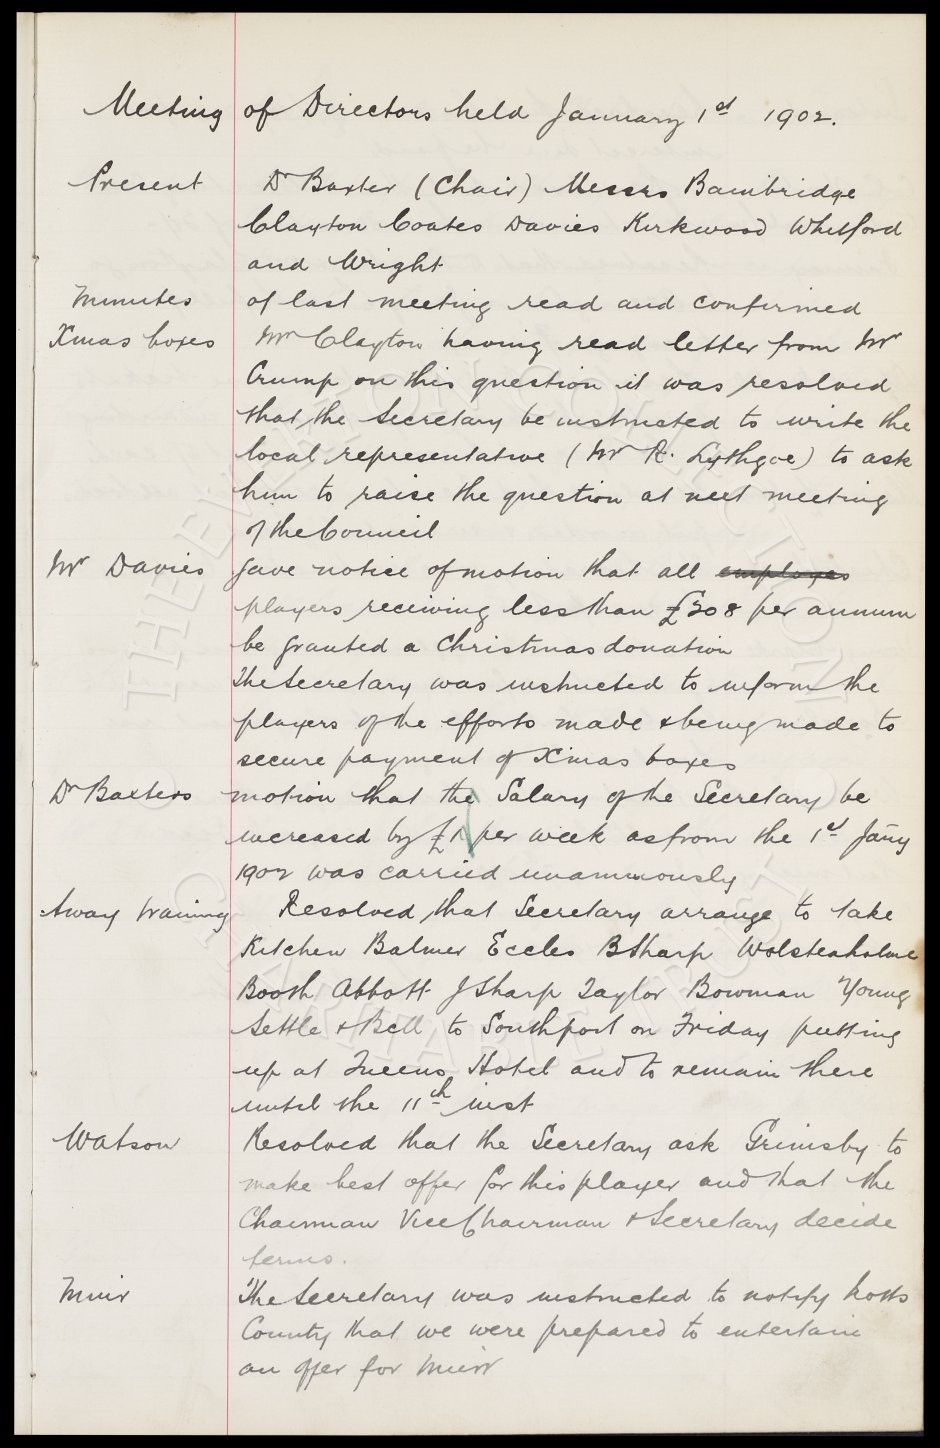 Meeting of Directors held January 1st 1902.
Present Dr Baxter (Chair) Messrs Bainbridge
Clayton Coates Davies Kirkwood Whitford
and Wright
Minutes of last meeting read and confirmed
Xmas boxes Mr Clayton having read letter from Mr
Crump on this question it was resolved
that the Secretary be instructed to write the
local representative (Mr R. Lythgoe) to ask
him to raise the question at next meeting
of the Council
Mr Davies gave notice of motion that all employes
players receiving less than £208 per annum
be granted a Christmas donation
The Secretary was instructed to inform the
players of the efforts made & being made to
secure payment of Xmas boxes
Dr Baxters motion that the Salary of the Secretary be
increased by £1 per week as from the 1st Jany
1902 was carried unanimously
Away training Resolved that Secretary arrange to take
Kitchen Balmer Eccles B Sharp Wolstenholme
Booth Abbott J Sharp Taylor Bowman Young
Settle & Bell to Southport on Friday putting
up at Queens Hotel and to remain there
until the 11th inst
Watson Resolved that the Secretary ask Grimsby to
make best offer for this player and that the
Chairman Vice Chairman & Secretary decide
terms.
Muir The Secretary was instructed to notify Notts
County that we were prepared to entertain
an offer for Muir
THE EVERTON COLLECTION
CHARITABLE TRUST